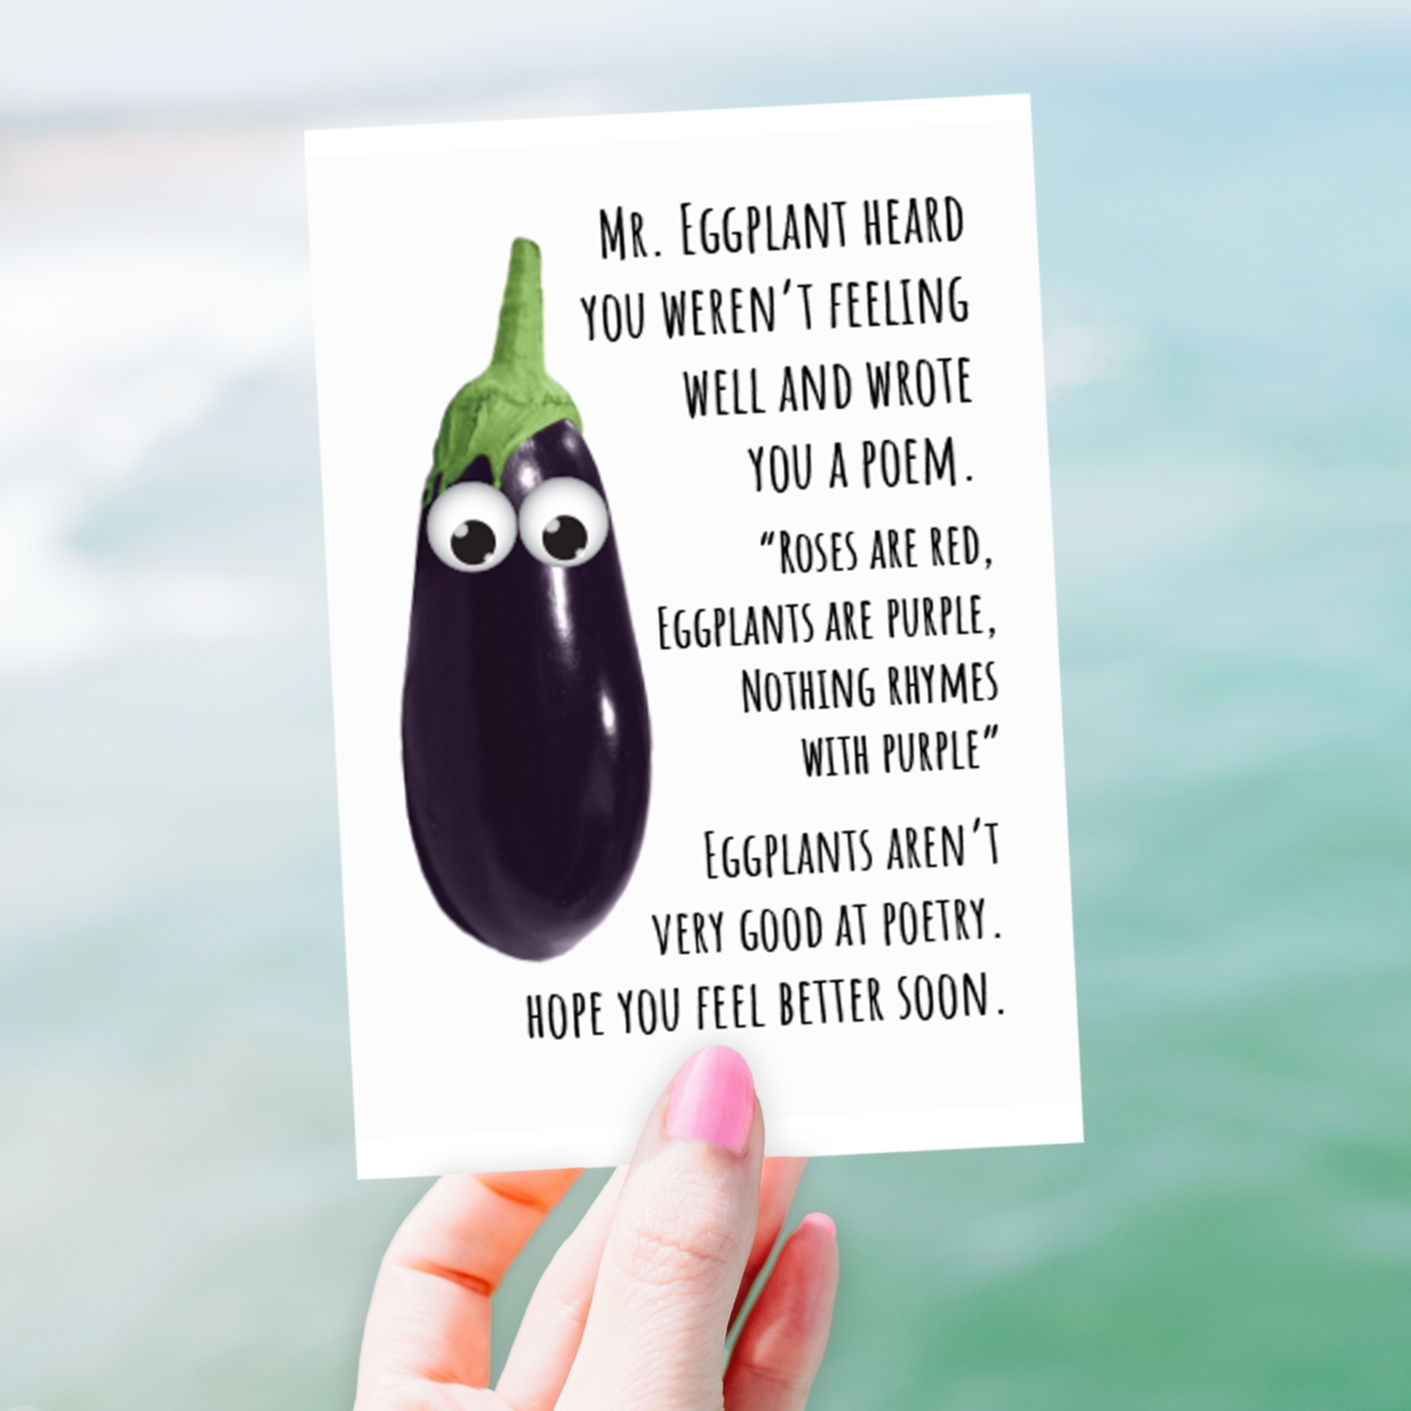 Mr. Eggplant heard
you weren't feeling
well and wrote
you a poem.
"Roses are red,
Eggplants are purple,
Nothing rhymes
with purple"
Eggplants aren't
very good at poetry.
hope you feel better soon.